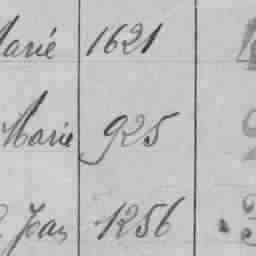 Marié 1621
Marie 925
Jean 1256